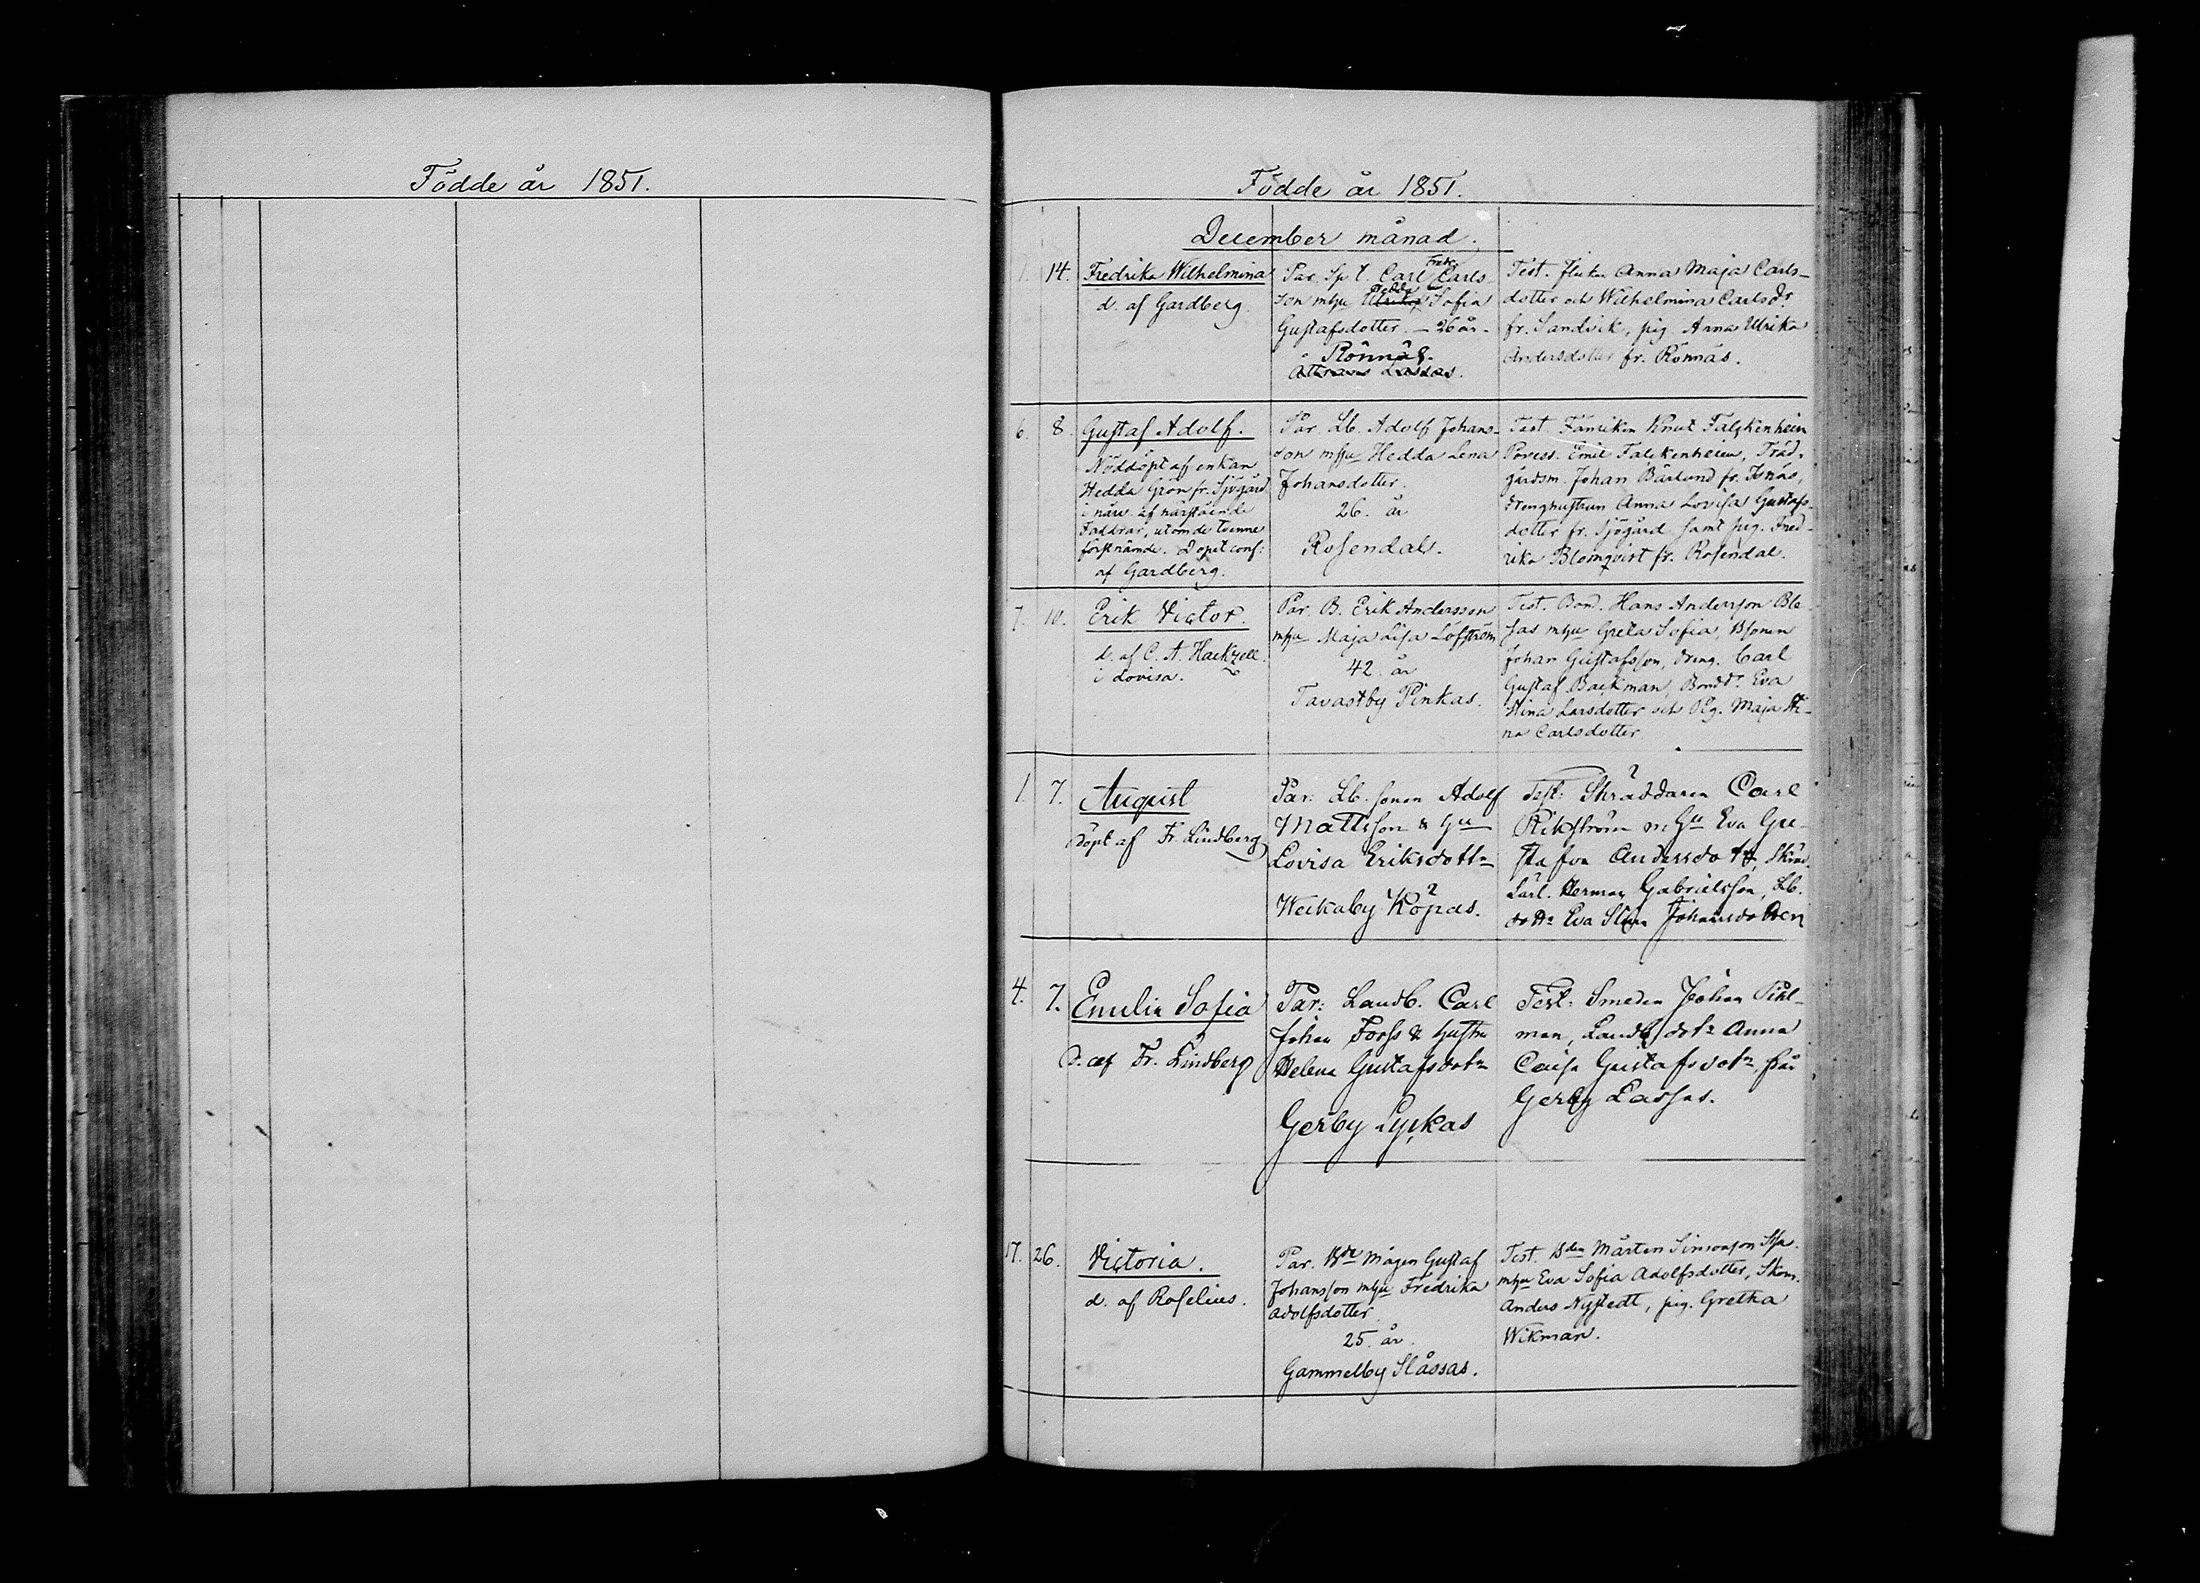 Födde år 1851.
Födde år 1851.
December månad.
1. 14. Fredrika Wilhelmina
d. af Gardberg.
Par. Sp t Carl Fredr. Carls-
son mhu Ulrika Hedda Sofia
Gustafsdotter. — 26 år.
Rönnäs.
Test. Anna Maja Carls-
dotter och Wilhelmina Carlsdr
fr. Sandvik, pig. Anna Ulrika
Andersdotter fr. Rönnäs.
6. 8. Gustaf Adolf.
Nöddöpt af enkan
Hedda Grön fr. Sjögård
i närv. af närstående
Faddrar, utom de tvenne
förstnämde. Dopet conf:
af Gardberg.
Par. Lb. Adolf Johans-
son mhu Hedda Lena
Johansdotter.
26. år
Rosendal.
Test. Fänriken Knut Falckenheim
Emil Falckenheim, Träd-
gårdsm. Johan Bärlund fr. Isnäs,
drenghustrun Anna Lovisa Gustafs-
dotter fr. Sjögård samt pig. Fred-
rika Blomqvist fr. Rosendal.
7. 10. Erik Victor.
d. af C. A. Hackzell
i Lovisa.
Par. B. Erik Andersson
mhu Maja Lisa Löfström
42 år
Tavastby Pinkas.
Test. Bond. Hans Andersson Ble-
sas mhu Greta Sofia, Bsonen
Johan Gustafsson, dreng. Carl
Gustaf Backman, Bonddr. Eva
Stina Larsdotter och Pig. Maja Sti-
na Carlsdotter
1. 7. August
döpt af Fr. Lindberg
Par: Lb. sonen Adolf
Mattsson & Hu
Lovisa Eriksdottr
Weckaby Köpas.
Test: Skräddaren Carl
Rikström m. Hu Eva Gu-
stafva Andersdottr,
Lärl. Herman Gabrielsson, Lb.
dottr Eva Stina Johansdotter
4. 7. Emilia Sofia
D. af Fr. Lindberg
Par: Landb. Carl
Johan Forss & hustru
Helena Gustafsdotr
Gerby Lyckas
Test: Smeden Johan Pihl-
man, Landb dotr Anna
Caisa Gustafsdotr från
Gerby Lassas.
17. 26. Victoria.
d. af Roselius.
Par. Bde mågen Gustaf
Johansson mhu Fredrika
Adolfsdotter.
25. år.
Gammelby Slåssas.
Test. Bden Mårten Simonson
mhu Eva Sofia Adolfsdotter, Skom.
Anders Nystedt, pig. Gretha
Wikman.